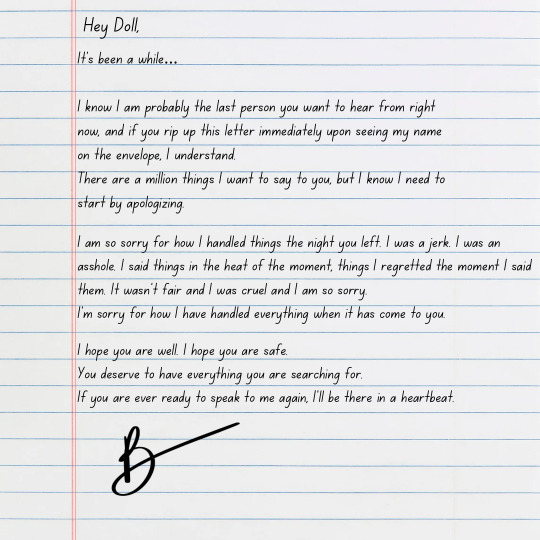 Hey Doll,
It's been a while...
I know I am probably the last person you want to hear from right
now, and if you rip up this letter immediately upon seeing my name
on the envelope, I understand.
There are a million things I want to say to you, but I know I need to
start by apologizing.
I am so sorry for how I handled things the night you left. I was a jerk. I was an
asshole. I said things in the heat of the moment, things I regretted the moment I said
them. It wasn't fair and I was cruel and I am so sorry.
I'm sorry for how I have handled everything when it has come to you.
I hope you are well. I hope you are safe.
You deserve to have everything you are searching for.
If you are ever ready to speak to me again, I'll be there in a heartbeat.
B